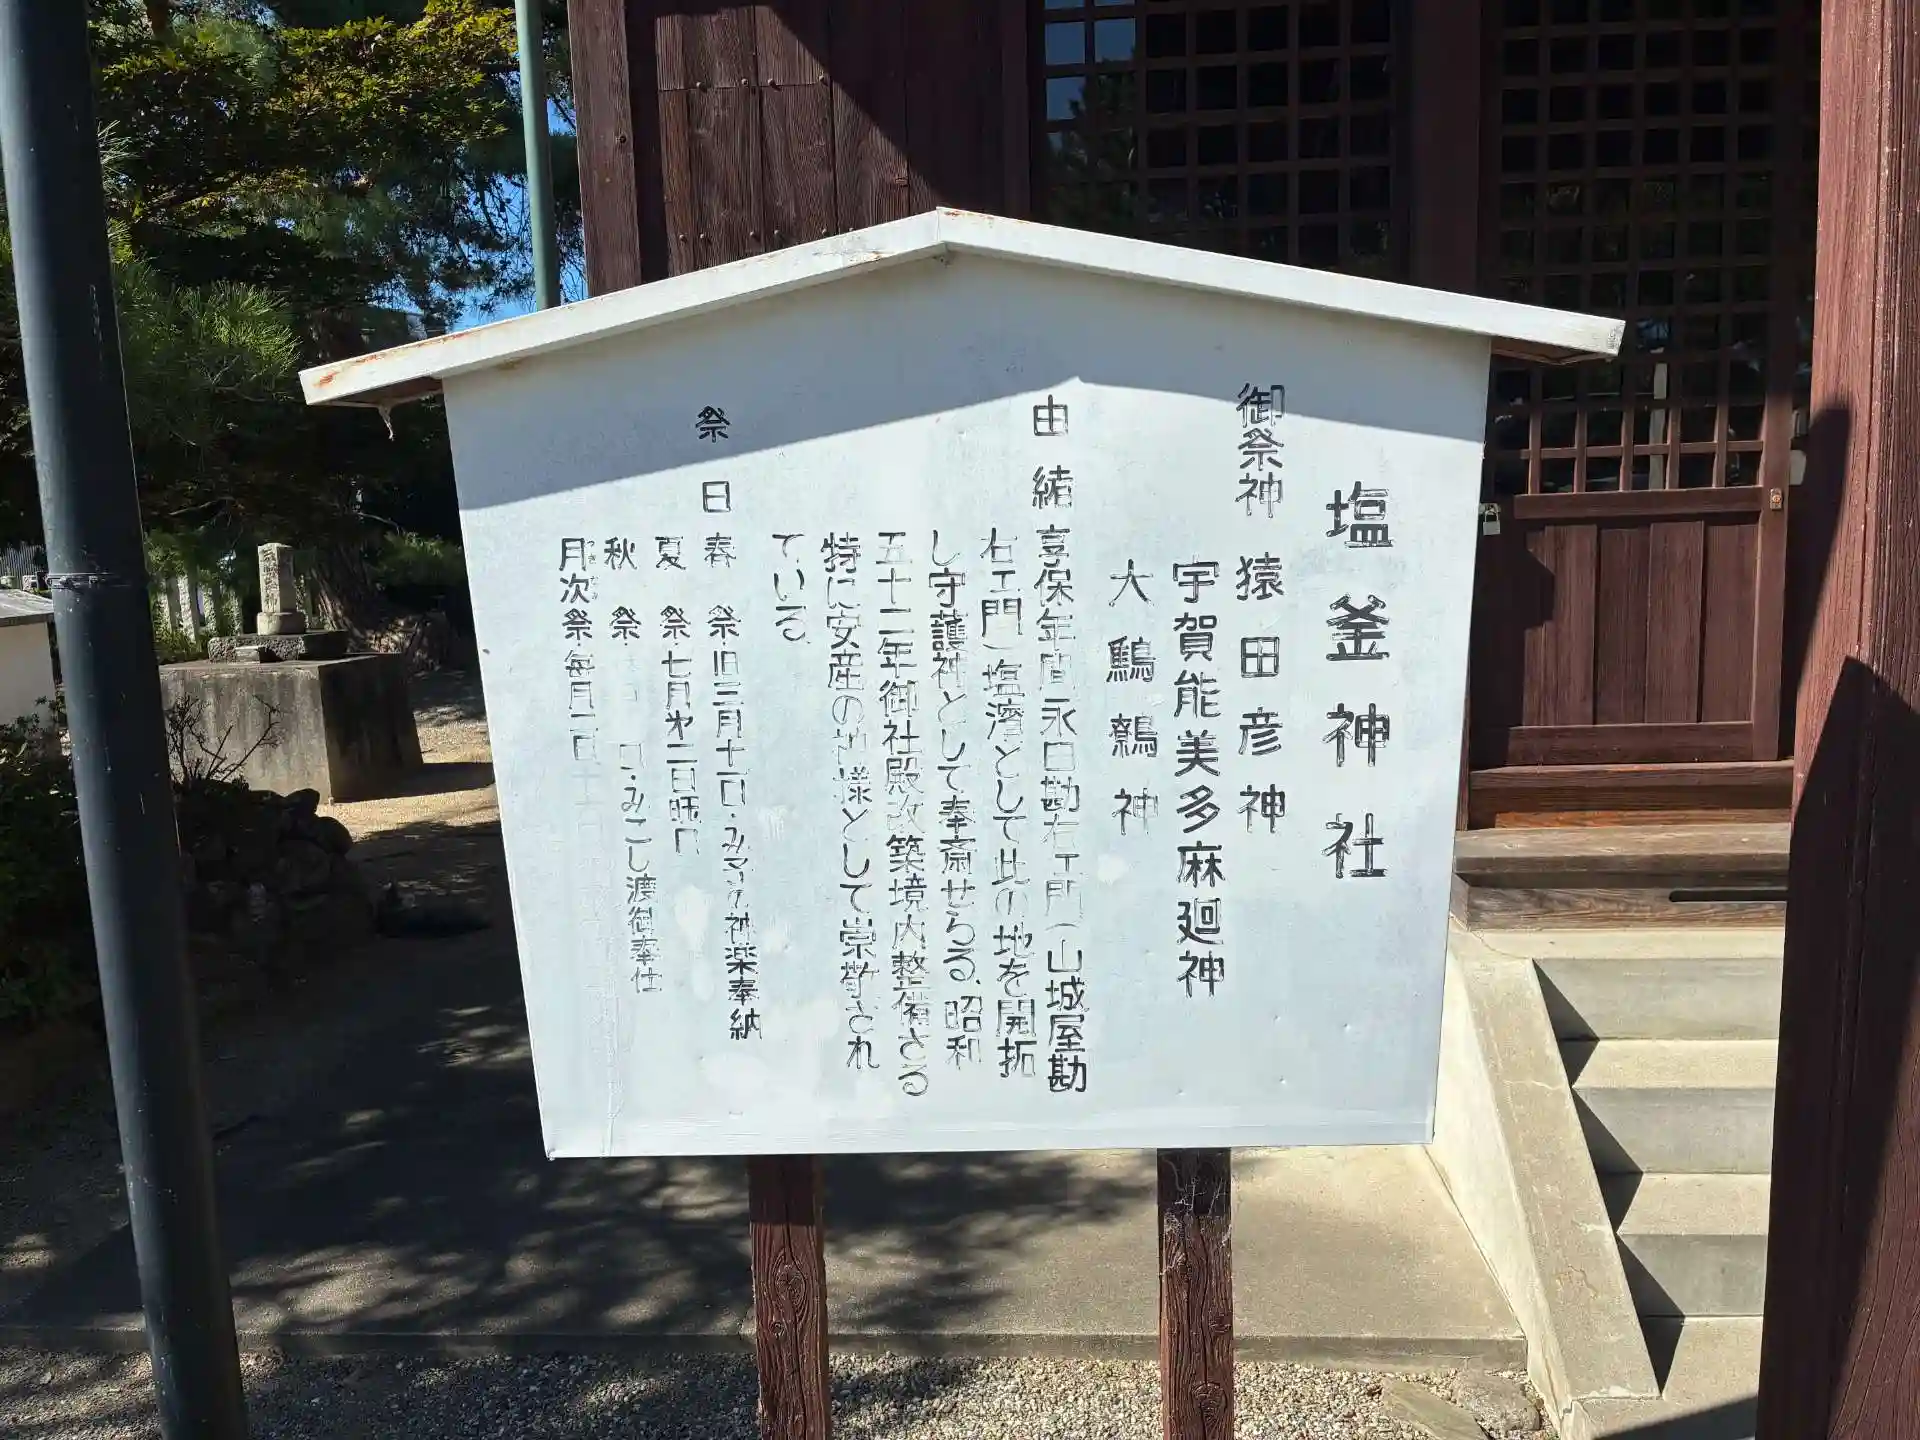 塩釜神社
御祭神 猿田彦神
宇賀能美多麻廻神
大鷦鷯神
由緒 享保年間永田勘右エ門(山城屋勘
右エ門)塩濱として此の地を開拓
し守護神として奉斎せらる、昭和
五十二年御社殿改築境内整備さる
特に安産の神様として崇敬され
ている
祭日 春祭・旧三月十一日・みこの神楽奉納
夏祭・七月第二日曜日
秋祭・日・みこし渡御奉仕
月次祭・毎月一日